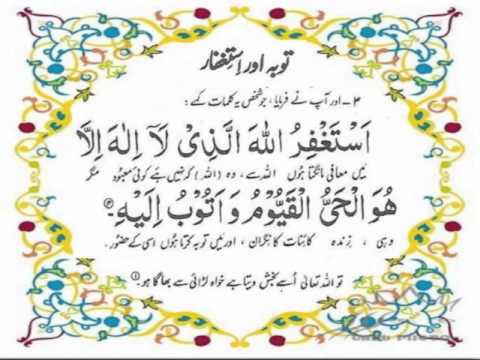 توبہ اور استغفار
۳۔ اور آپ نے فرمایا، جو شخص یہ کلمات کہے:
اَسْتَغْفِرُ اللّٰهَ الَّذِیْ لَآ اِلٰهَ اِلَّا
میں معافی مانگتا ہوں اللہ سے، وہ (اللہ) کہ نہیں ہے کوئی معبود مگر
هُوَ الْحَیُّ الْقَیُّوْمُ وَاَتُوْبُ اِلَیْهِ۔
وہی، زندہ کائنات کا نگران، اور میں توبہ کرتا ہوں اسی کے حضور۔
تو اللہ تعالیٰ اُسے بخش دیتا ہے خواہ لڑائی سے بھاگا ہو۔①